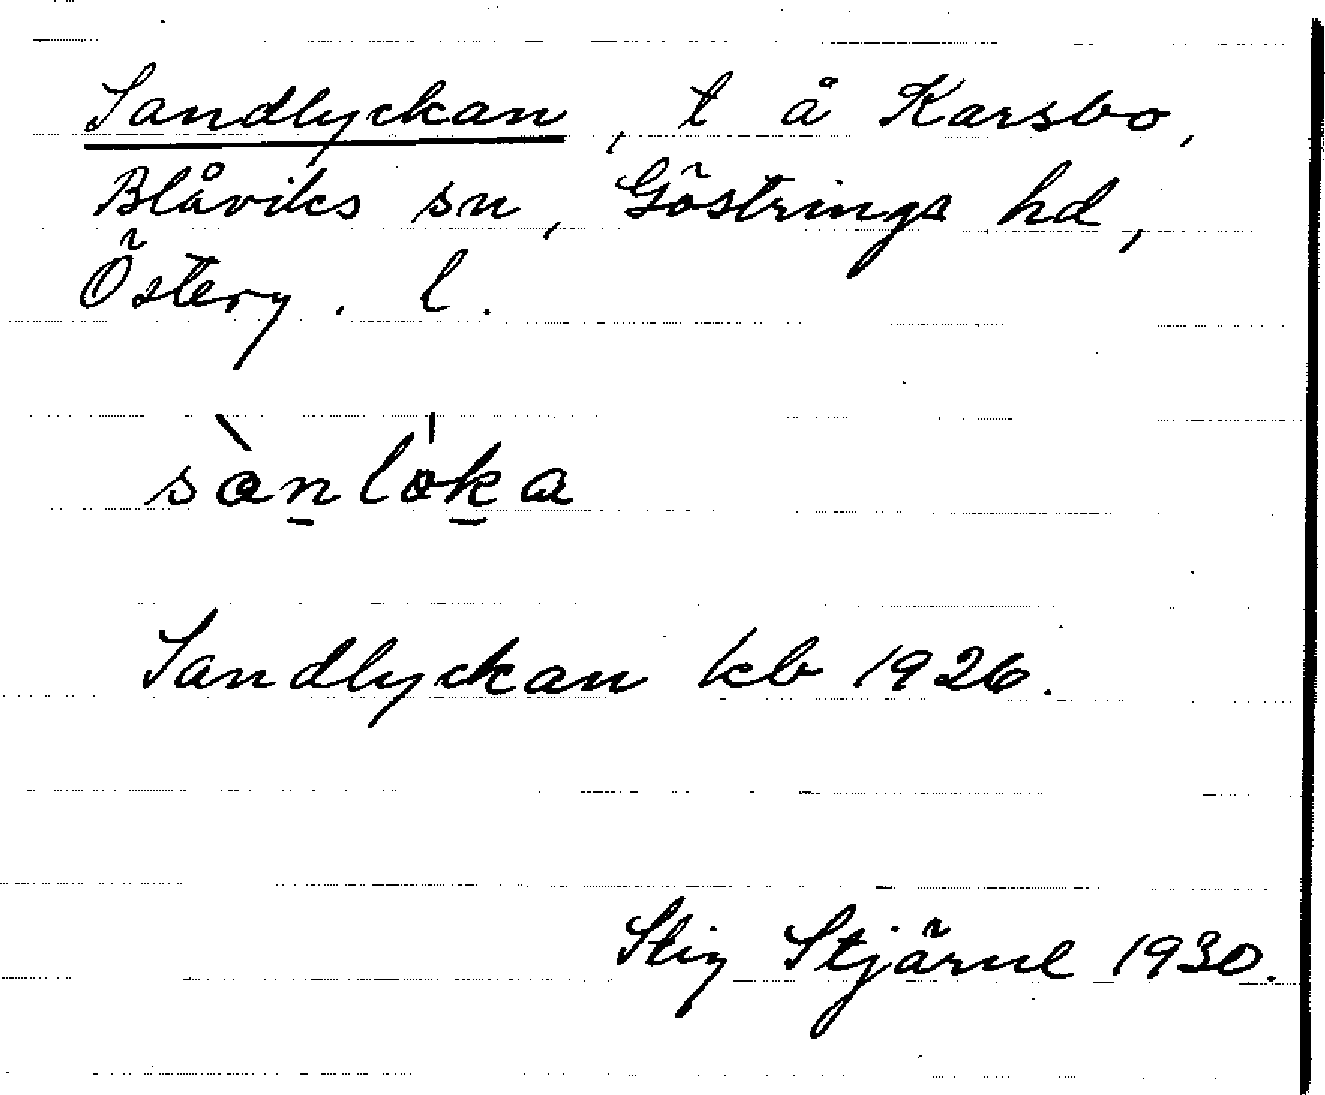 Sandlyckan, t å Karsbo,
Blåviks sn, Göstrings hd,
Österg. l.
sànlǿka
Sandlyckan kb 1926.
Stig Stjärne 1930.